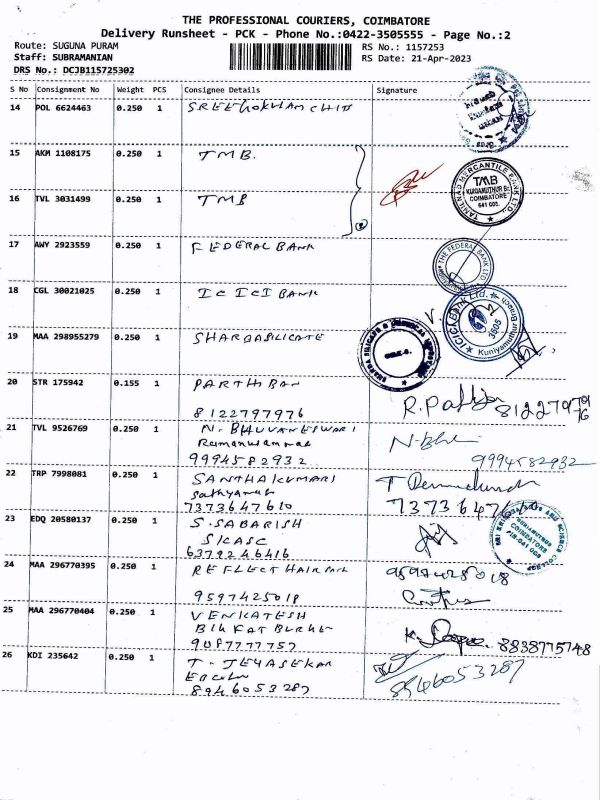 THE PROFESSIONAL COURIERS, COIMBATORE
Delivery Runsheet - PCK - Phone No.:0422-3505555 - Page No.:2
Route: SUGUNA PURAM
RS No.: 1157253
Staff: SUBRAMANIAN
RS Date: 21-Apr-2023
DRS No.: DCJB115725302
S No Consignment No Weight PCS Consignee Details Signature
14 POL 6624463 0.250 1
15 AKM 1108175 0.250 1 TMB.
16 TVL 3031499 0.250 1 TMB
TAMILNAD MERCANTILE BANK LTD.
TMB
KUNIAMUTHUR Br.
COIMBATORE
641 008.
17 AWY 2923559 0.250 1 FEDERAL BANK
THE FEDERAL BANK LTD
18 CGL 30021025 0.250 1 ICICI BANK
ICICI Bank Ltd.
Kuniyamuthur Branch
3505
19 MAA 298955279 0.250 1 SHARDASILICATE
20 STR 175942 0.155 1 PARTHIBAN
8122797976
21 TVL 9526769 0.250 1 N. BHUVANESWARI
9994582932
9994582932
22 TRP 7998081 0.250 1 SANTHAKUMARI
7373647610
23 EDQ 20580137 0.250 1 S. SABARISH
SKASC
6379246416
COIMBATORE
24 MAA 296770395 0.250 1 REFLECT HAIR
9597425018
9597425018
25 MAA 296770404 0.250 1 VENKATESH
9087777757
8838775748
26 KDI 235642 0.250 1 T. JEYASEKAR
8946053287
8946053287